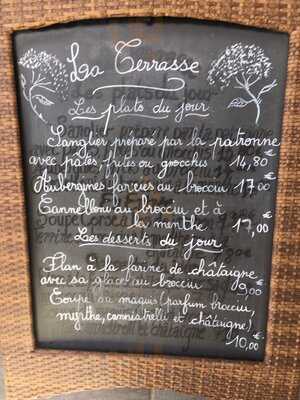 La Terrasse
Les plats du jour
Sanglier préparé par la patronne
avec pâtes, frites ou gnocchis 14,80 €
Aubergines farcies au brocciu 17,00 €
Cannelloni au brocciu et à
la menthe 17,00 €
Les desserts du jour
Flan à la farine de châtaigne
avec sa glace au brocciu 9,00 €
Coupe au maquis (parfum brocciu,
myrthe, cannistrelli et châtaigne)
10,00 €